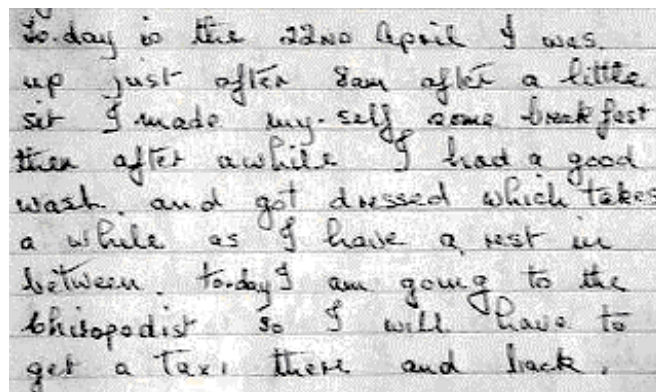 to-day is the 22ND April I was.
up just after 8am after a little
sit I made my-self some breakfest
then after awhile I had a good
wash. and got dressed which takes
a while as I have a rest in
between. to-day I am going to the
Chiropodist so I will have to
get a Taxi there and back.